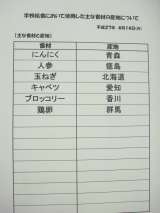 学校給食において使用した主な食材の産地について
平成27年 6月16日(火)
【主な食材と産地】
食材 産地
にんにく 青森
人参 徳島
玉ねぎ 北海道
キャベツ 愛知
ブロッコリー 香川
鶏卵 群馬